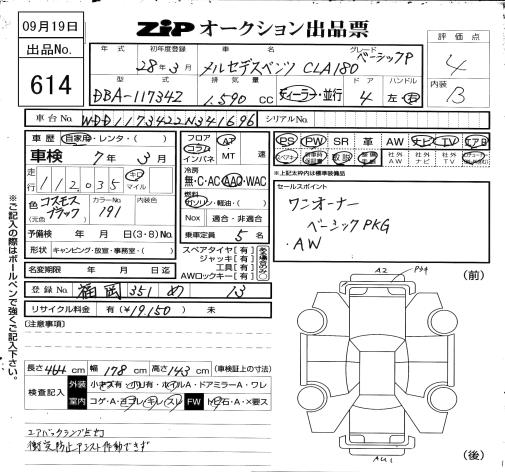 09月19日
ZiP オークション出品票
出品No. 614
年式 初年度登録 車名 グレード ドア ハンドル
28年3月 メルセデスベンツ CLA180 ベーシックP
型式 排気量
DBA-117342 1.590 cc ディーラー・並行 4 左・右
評価点 4
内装 B
車台No. WDD1173422N341696 シリアルNo.
車歴 自家用・レンタ・( )
車検 7年3月
走行 112,035 キロ マイル
色(元色) コスモスブラック カラーNo. 191 内装色
予備検 年 月 日(3・8)No.
形状 キャンピング・放宣・事務室・( )
名変期限 年 月 日迄
フロア コラム インパネ AT MT 速
冷房 無・C・AC・AAC・WAC
燃料 ガソリン・軽油・( )
Nox 適合・非適合
乗車定員 5 名
スペアタイヤ【有】
ジャッキ【有】
工具【有】
AWロックキー【有】
PS PW SR 革 AW ナビ TV エアB
社外AW 社外ナビ 社外TV
*上記太枠内は標準装備品
セールスポイント
ワンオーナー
ベーシックPKG
・AW
登録No. 福岡 351 め 13
リサイクル料金 有(¥19150) 未
【注意事項】
長さ 464 cm 幅 178 cm 高さ 143 cm (車検証上の寸法)
検査記入 外装 小キズ有・小凹有・ホイルA・ドアミラーA・ワレ
室内 コゲ・A・ヨゴレ・キレ・スレ FW トビ石・A・X要ス
エアバックランプ点灯
衝突防止アシスト作動できず
※ご記入の際はボールペンで強くご記入下さい。
A2
(前)
(後)